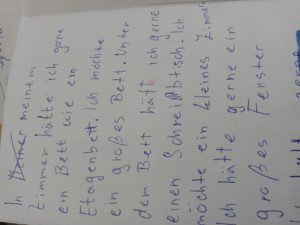 In meinem
Zimmer hätte ich gerne
ein Bett wie ein
Etagenbett. Ich möchte
ein großes Bett. Unter
dem Bett hätt ich gerne
einen Schreibtisch. Ich
möchte ein kleines Zimmer
Ich hätte gerne ein
großes Fenster.